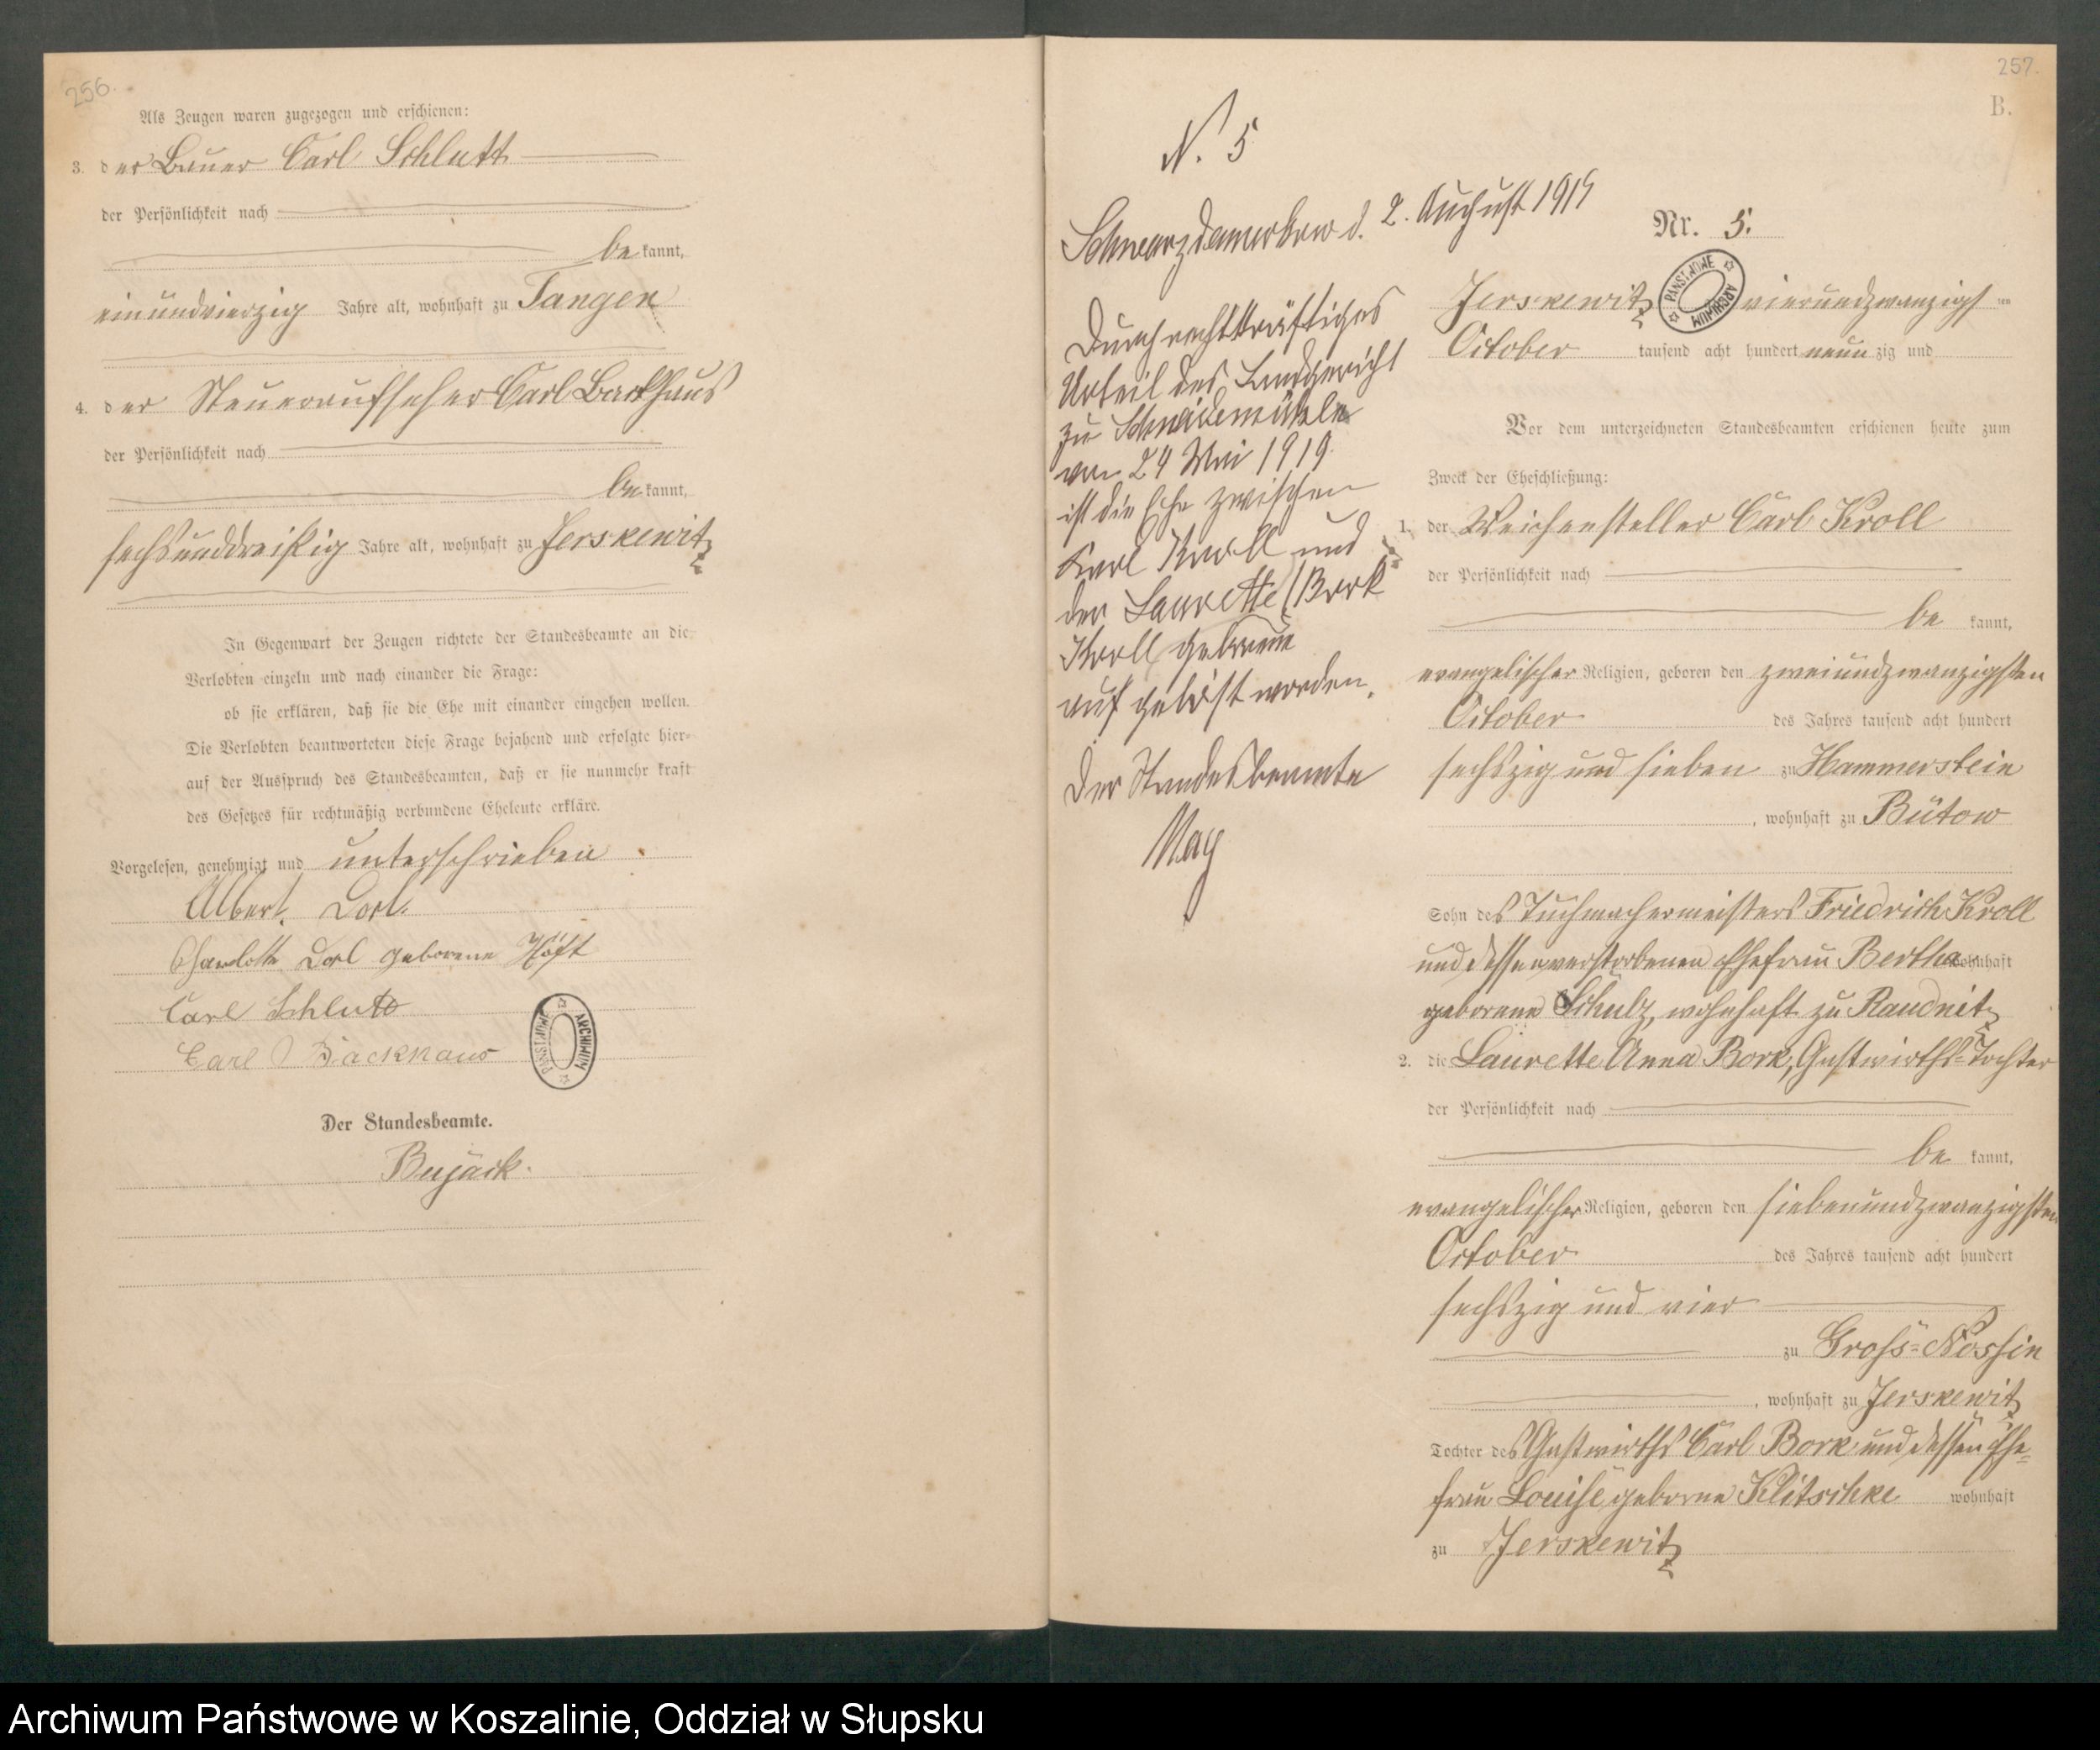 256.
Als Zeugen waren zugezogen und erschienen:
3. der Bauer Carl Schlutt
der Persönlichkeit nach
be kannt,
einundvierzig Jahre alt, wohnhaft zu Tangen
4. der Steueraufseher Carl Backhaus
der Persönlichkeit nach
be kannt,
sechsunddreißig Jahre alt, wohnhaft zu Jerskewitz
In Gegenwart der Zeugen richtete der Standesbeamte an die
Verlobten einzeln und nach einander die Frage:
ob sie erklären, daß sie die Ehe mit einander eingehen wollen.
Die Verlobten beantworteten diese Frage bejahend und erfolgte hier-
auf der Ausspruch des Standesbeamten, daß er sie nunmehr kraft
des Gesetzes für rechtmäßig verbundene Eheleute erkläre.
Vorgelesen, genehmigt und unterschrieben
Albert
Charlotte geborene Höft
Carl Schlutt
Carl Backhaus
PANSTWOWE ARCHIWUM
Der Standesbeamte.
Bujack.
257.
B.
N. 5
Schwarzdamerkow d. 2. August 1919
Durch rechtskräftiges
Urteil des Landgericht
zu Schneidemühle
von 24 Mai 1919
ist die Ehe zwischen
Karl Kroll und
der Laurette Bork
Kroll geborene
aufgelöst worden.
Der Standesbeamte
May
Nr. 5.
Jerskewitz vierundzwanzigst en
PANSTWOWE ARCHIWUM
October tausend acht hundert neun zig und
Vor dem unterzeichneten Standesbeamten erschienen heute zum
Zweck der Eheschließung:
1. der Weichensteller Carl Kroll
der Persönlichkeit nach
be kannt,
evangelischer Religion, geboren den zweiundzwanzigsten
October des Jahres tausend acht hundert
sechszig und sieben zu Hammerstein
, wohnhaft zu Bütow
Sohn des Tuchmachermeisters Friedrich Kroll
und dessen verstorbenen Ehefrau Bertha wohnhaft
geborene Schulz, wohnhaft zu Raudnitz
2. die Laurette Anna Bork, Gastwirths-Tochter
der Persönlichkeit nach
be kannt,
evangelischer Religion, geboren den siebenundzwanzigsten
October des Jahres tausend acht hundert
sechszig und vier
zu Groß-Nossin
, wohnhaft zu Jerskewitz
Tochter des Gastwirths Carl Bork und dessen Ehe-
frau Louise geborne Klitschke wohnhaft
zu Jerskewitz
Archiwum Państwowe w Koszalinie, Oddział w Słupsku